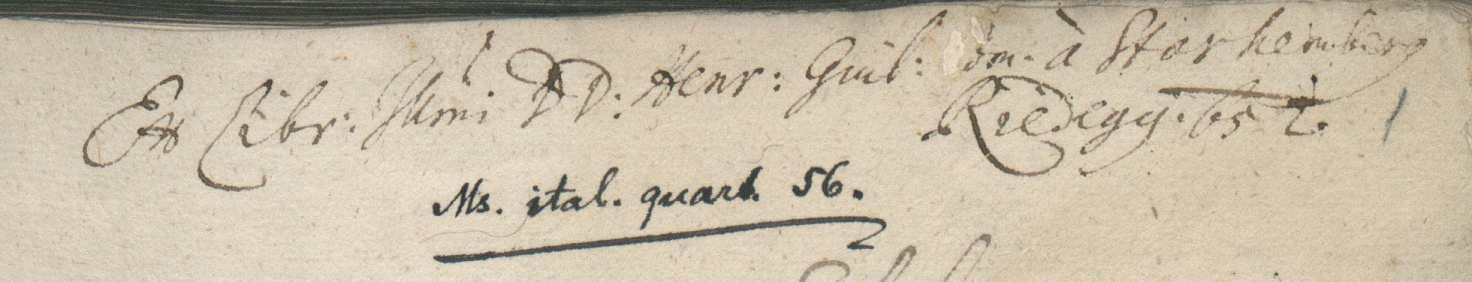 Ex Libr: Illmi DD: Henr: Guil: Com. à Starhemberg
Riedegg. 652. 1
Ms. ital. quart. 56.